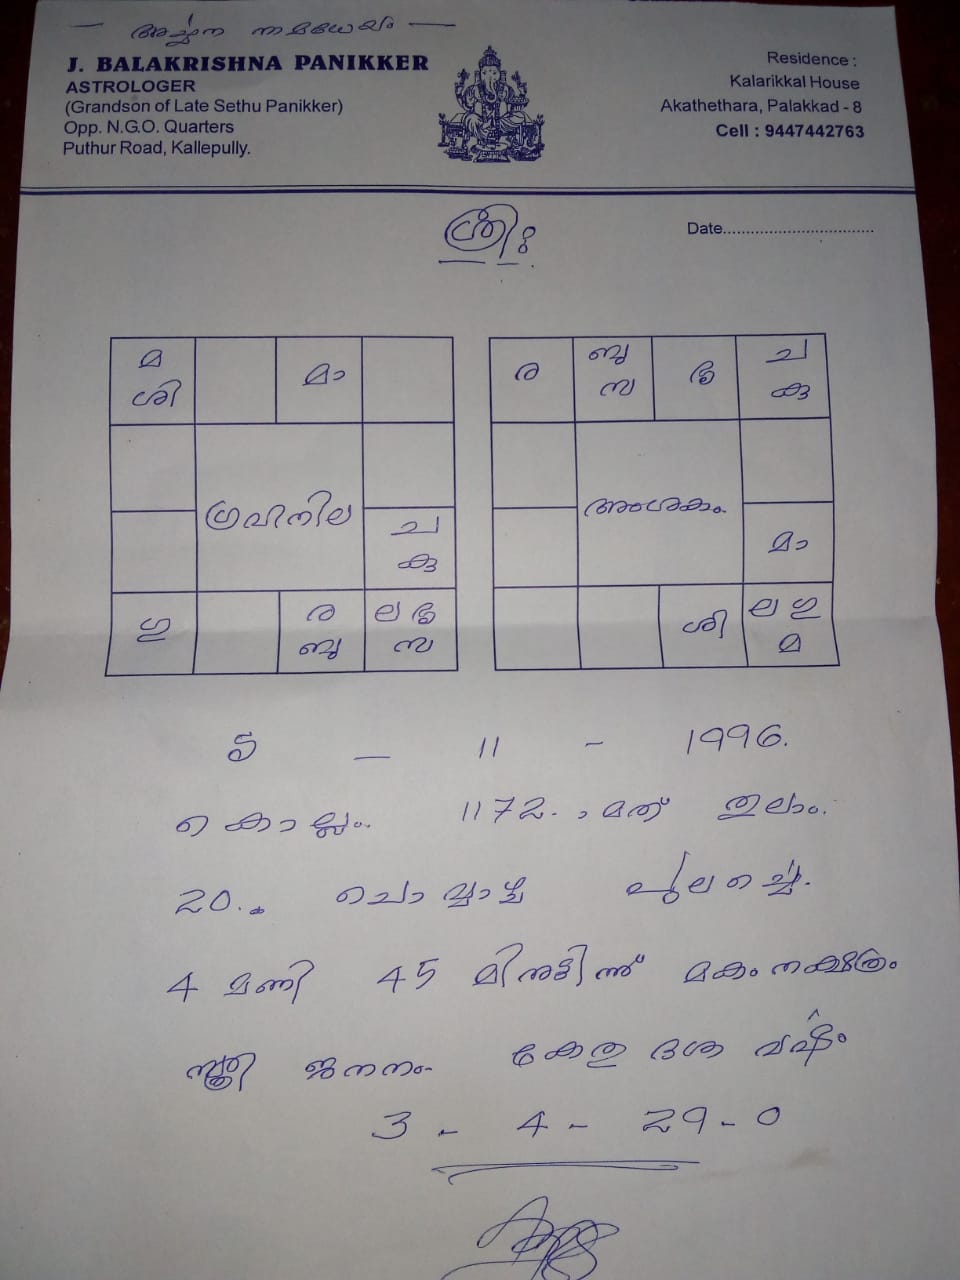 — അർച്ചന നാമധേയം —
J. BALAKRISHNA PANIKKER
ASTROLOGER
(Grandson of Late Sethu Panikker)
Opp. N.G.O. Quarters
Puthur Road, Kallepully.
Residence :
Kalarikkal House
Akathethara, Palakkad - 8
Cell : 9447442763
ശ്രീഃ
Date..................................
മ
ശി
മാ
ഗ്രഹനില
ച
കു
ഗു
ര
ബു
ല
സ
ര
ബു
സ
ച
കു
അംശകം
മാ
ശി
ല ഗു
മ
5 — 11 - 1996.
കൊല്ലം 1172-ാമത് തുലാം.
20. ചൊവ്വാഴ്ച പുലർച്ചെ.
4 മണി 45 മിനുട്ടിന്ന് മകം നക്ഷത്രം
സ്ത്രീ ജനനം കേതു ദശ വർഷം
3 - 4 - 29 - 0